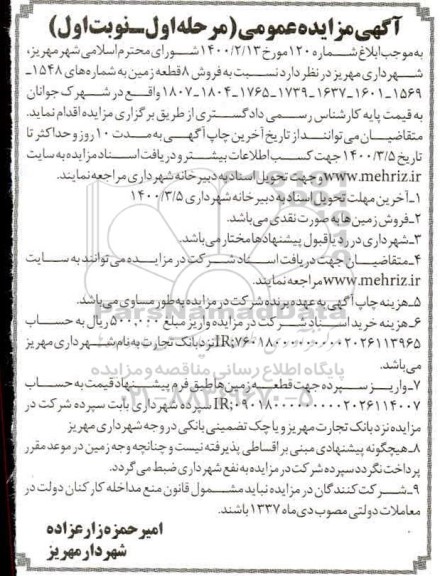 آگهی مزایده عمومی (مرحله اول_نوبت اول)
به موجب ابلاغ شماره ۱۲۰ مورخ ۱۴۰۰/۲/۱۳ شورای محترم اسلامی شهر مهریز،
شهرداری مهریز در نظر دارد نسبت به فروش ۸ قطعه زمین به شماره های ۱۵۴۸-
۱۵۶۹-۱۶۰۱-۱۶۳۷-۱۷۳۹-۱۷۶۵-۱۸۰۴-۱۸۰۷ واقع در شهرک جوانان
به قیمت پایه کارشناس رسمی دادگستری از طریق برگزاری مزایده اقدام نماید.
متقاضیان می توانند از تاریخ آخرین چاپ آگهی به مدت ۱۰ روز و حداکثر تا
تاریخ ۱۴۰۰/۳/۵ جهت کسب اطلاعات بیشتر و دریافت اسناد مزایده به سایت
www.mehriz.ir و جهت تحویل اسناد به دبیرخانه شهرداری مراجعه نمایند.
۱-آخرین مهلت تحویل اسناد به دبیرخانه شهرداری ۱۴۰۰/۳/۵
۲-فروش زمین ها به صورت نقدی می باشد.
۳-شهرداری در رد یا قبول پیشنهادها مختار می باشد.
۴-متقاضیان جهت دریافت اسناد شرکت در مزایده می توانند به سایت
www.mehriz.ir مراجعه نمایند.
۵-هزینه چاپ آگهی به عهده برنده شرکت در مزایده به طور مساوی می باشد.
۶-هزینه خرید اسناد شرکت در مزایده واریز مبلغ ۵۰۰,۰۰۰ ریال به حساب
IR;۷۶۰۱۸۰۰۰۰۰۰۰۰۰۲۰۲۶۱۱۳۹۶۵ نزد بانک تجارت به نام شهرداری مهریز
می باشد.
۷-واریز سپرده جهت قطعه زمین ها طبق فرم پیشنهاد قیمت به حساب
IR;۰۹۰۱۸۰۰۰۰۰۰۰۰۰۲۰۲۶۱۱۴۰۰۷ سپرده شهرداری بابت سپرده شرکت در
مزایده نزد بانک تجارت مهریز و یا چک تضمینی بانکی در وجه شهرداری مهریز
۸-هیچگونه پیشنهادی مبنی بر اقساطی پذیرفته نیست و چنانچه وجه زمین در موعد مقرر
پرداخت نگردد سپرده شرکت در مزایده به نفع شهرداری ضبط می گردد.
۹-شرکت کنندگان در مزایده نباید مشمول قانون منع مداخله کارکنان دولت در
معاملات دولتی مصوب دی ماه ۱۳۳۷ باشند.
امیر حمزه زارع زاده
شهردار مهریز
ParsNamadData
پایگاه اطلاع رسانی مناقصه و مزایده
۰۲۱-۸۸۳۴۹۶۷۰-۵